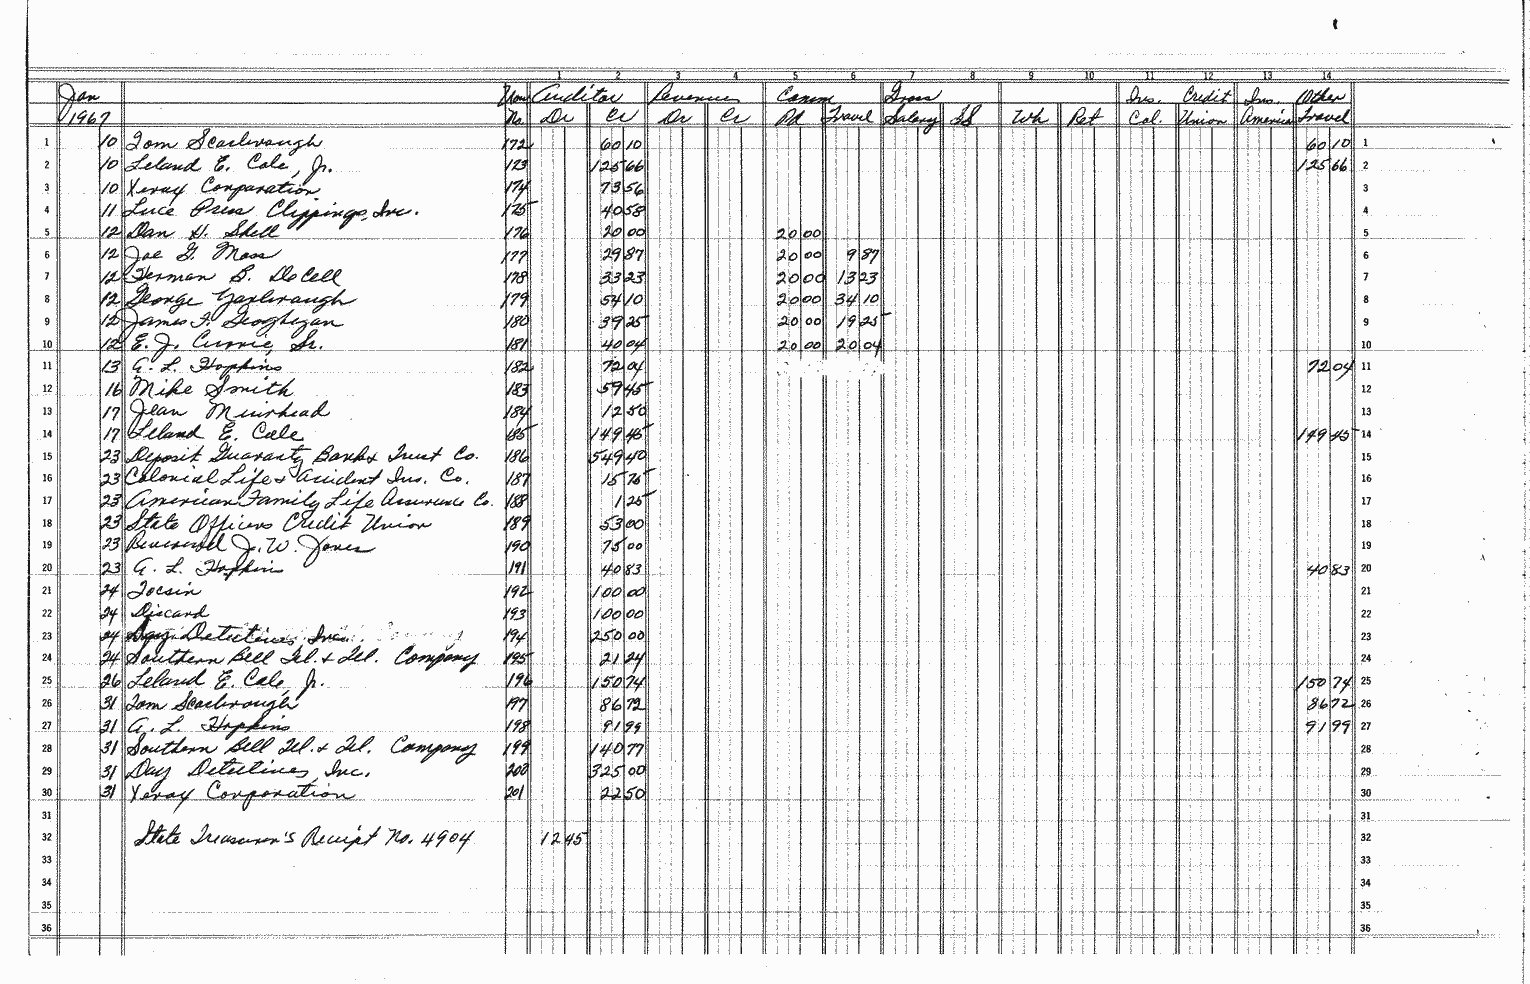 1 2 3 4 5 6 7 8 9 10 11 12 13 14
Jan Auditor Revenue Comm Gross Ins. Credit Ins. Other
1967 No. Dr Cr Dr Cr PD Travel Salary SS Wh Ret Col. Union America Travel
1 10 Tom Scarbrough 172 60 10 60 10 1
2 10 Leland E. Cole, Jr. 173 125 66 125 66 2
3 10 Xerox Corporation 174 73 56 3
4 11 Luce Press Clippings, Inc. 175 40 58 4
5 12 Dan H. Shell 176 20 00 20 00 5
6 12 Joe G. Moss 177 29 87 20 00 9 87 6
7 12 Herman B. DeCell 178 33 23 20 00 13 23 7
8 12 George Yarbrough 179 54 10 20 00 34 10 8
9 12 James F. Geoghegan 180 39 25 20 00 19 25 9
10 12 E. J. Currie, Sr. 181 40 04 20 00 20 04 10
11 13 A. L. Hopkins 182 72 04 72 04 11
12 16 Mike Smith 183 59 45 12
13 17 Jean Muirhead 184 12 50 13
14 17 Leland E. Cole 185 149 45 149 45 14
15 23 Deposit Guaranty Bank & Trust Co. 186 549 40 15
16 23 Colonial Life & Accident Ins. Co. 187 15 75 16
17 23 American Family Life Assurance Co. 188 1 25 17
18 23 State Officers Credit Union 189 53 00 18
19 23 Reverend J. W. Jones 190 75 00 19
20 23 A. L. Hopkins 191 40 83 40 83 20
21 24 Tocsin 192 100 00 21
22 24 Discard 193 100 00 22
23 24 Day Detectives, Inc. 194 250 00 23
24 24 Southern Bell Tel. & Tel. Company 195 21 24 24
25 26 Leland E. Cole, Jr. 196 150 74 150 74 25
26 31 Tom Scarbrough 197 86 72 86 72 26
27 31 A. L. Hopkins 198 91 99 91 99 27
28 31 Southern Bell Tel. & Tel. Company 199 140 77 28
29 31 Day Detectives, Inc. 200 325 00 29
30 31 Xerox Corporation 201 22 50 30
31 31
32 State Treasurer's Receipt No. 4904 12 45 32
33 33
34 34
35 35
36 36